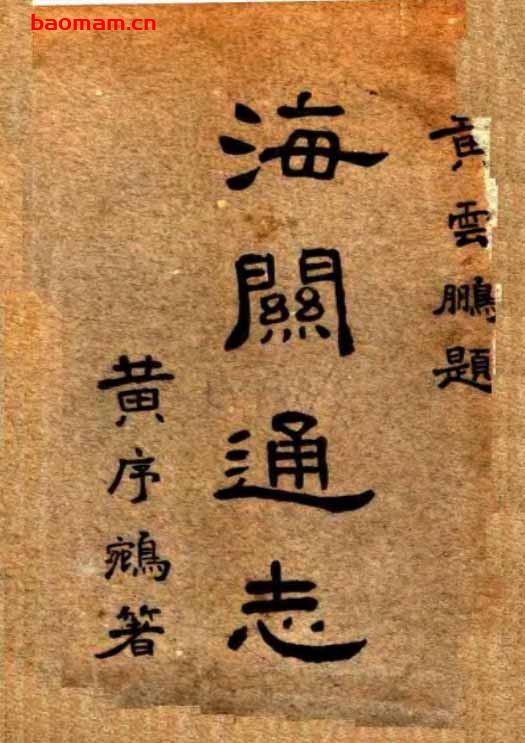 baomam.cn
黄雲鵬題
海關通志
黄序鵷著